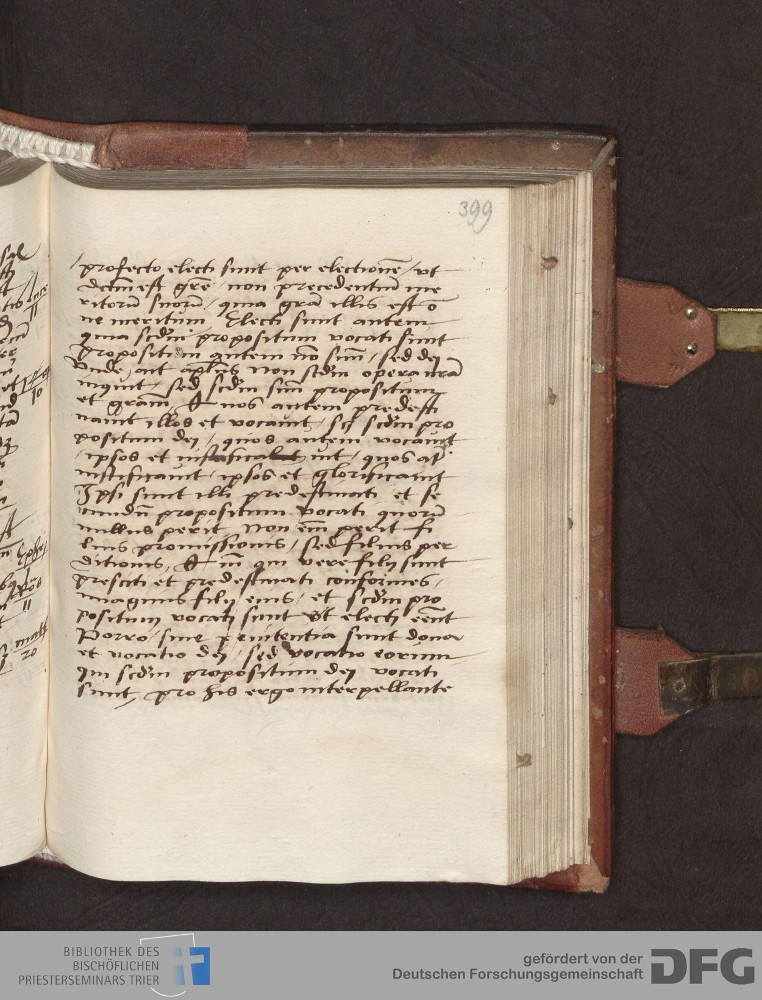 399
profecto electi sunt per electionē / ut
dictū est grē / non precedentiū me
ritorū suorū / quia grā illis est ō
ne meritum / Electi sunt autem
quia scdm propositum vocati sunt
Propositum autem nō suū / sed dej
Unde, ait aplus Non scdm opera nrā
inquit / sed scdm suū propositum
et gratiā, Et nos autem predesti
navit illos et vocavit / scj scdm pro
positum dej / quos autem vocavit
/ ipsos et iustificavit / quos at
iustificavit / ipsos et glorificavit
Ipsi sunt illi predestinati et se
cundū propositum vocati quorū
nullus perit Non em̄ perit fi
lius promissionis / sed filius per
ditionis, qui vere filij sunt
presciti et predestinati conformes /
imaginis filij eius / et scdm pro
positum vocati sunt Ut electi eent
Porro / sine penitentia sunt dona
et vocatio dej / sed vocatio eorum
qui scdm propositum dej vocati
sunt, pro his ergo interpellante
BIBLIOTHEK DES
BISCHÖFLICHEN
PRIESTERSEMINARS TRIER
gefördert von der
Deutschen Forschungsgemeinschaft
DFG